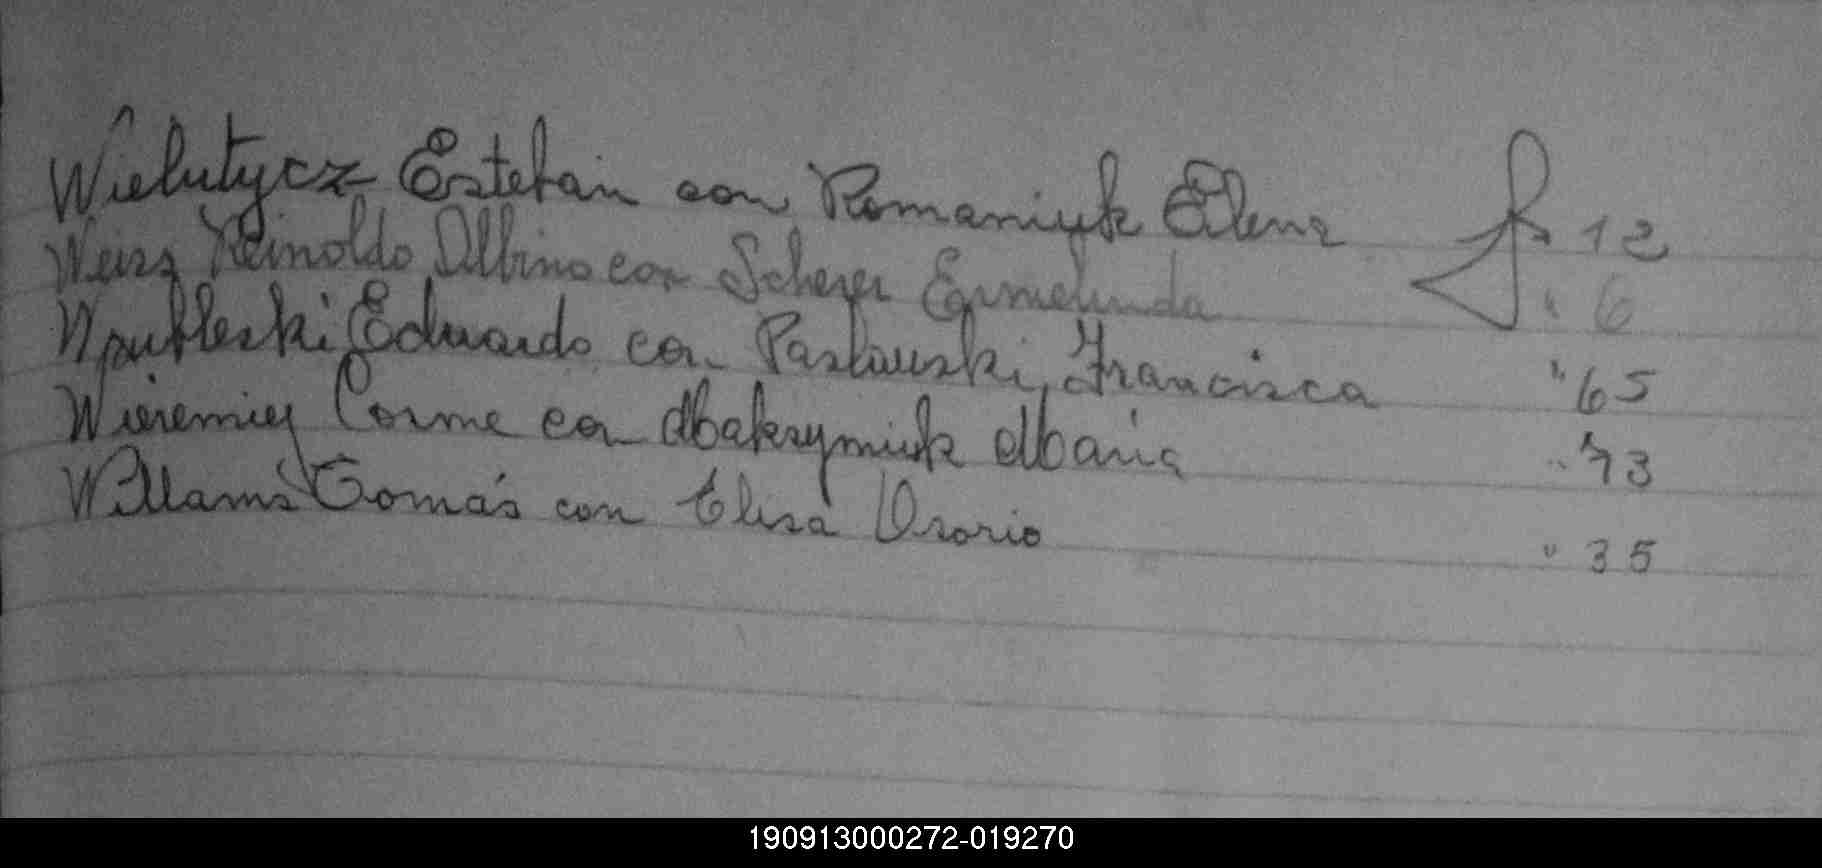 Wielutycz Estefan con Romaniuk Elena F. 12
Weisz Reinoldo Albino con Scherer Ermelinda " 6
Eduardo con Paslauski, Francisca " 65
Wieremiey Cosme con Maksymiuk Maria " 73
Willams Tomás con Elisa Osorio " 35
190913000272-019270